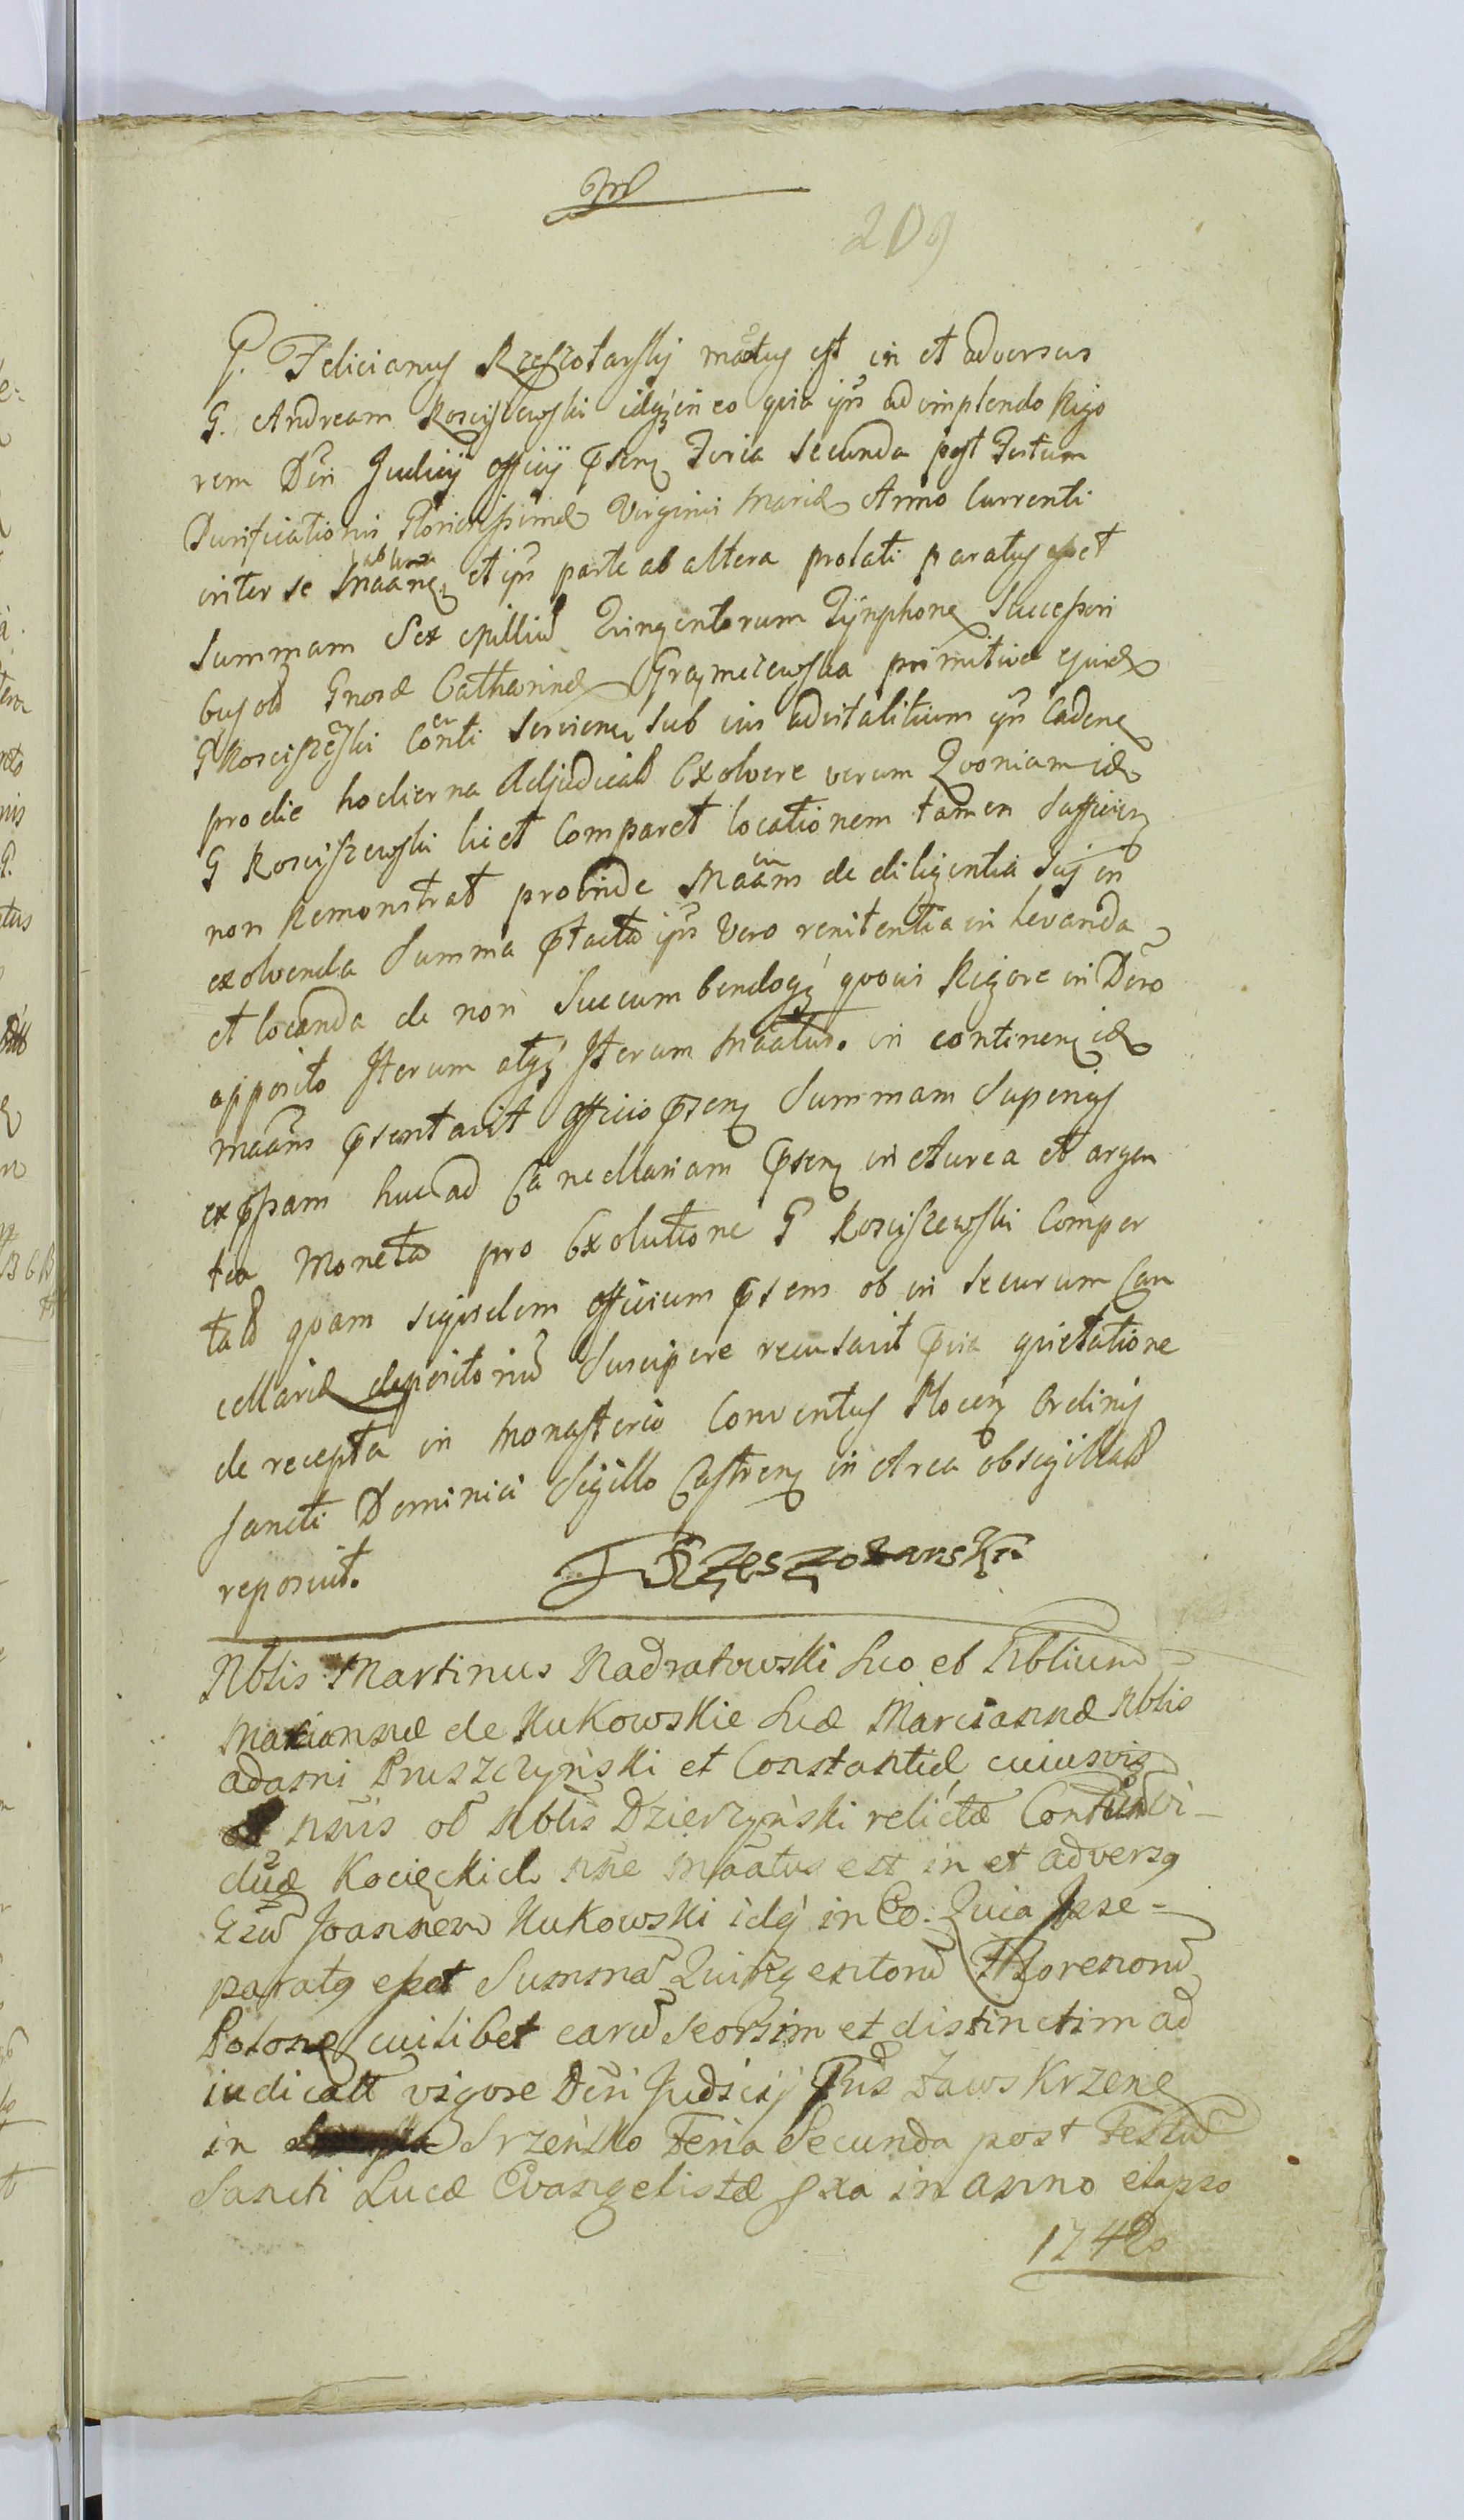 209
G. Felicianus Rzeszotarskij mātus est in et adversus
G. Andream Kosciszewski idq̃ in eo quia ips̃ adimplendo Rigo
rem Dẽti Judicij officij p̃senẽ Feria Secunda post Festum
Purificationis Gloriosissimæ Virginis Mariæ Anno Currenti
inter se Māanẽ et ips̃ parte ab altera prolati paratus esset
Summam Sex millium Quingentorum Tynphonẽ Successori
bus olĩ Gnosæ Catharinæ Grązmiczewska primitivæ ejusdẽ
G Koscisze͂ski Cõnti servienẽ sub ius advitalitium ips̃ Cadenẽ
pro die hodierna Adjudicatã Exolvere verum Quoniam idẽ
G Kosciszewski licet Comparet locationem tamen sufficienẽ
non Remonstrat proinde Māans de diligentia sui in
exolvenda Summa p̃tacta ips̃ vero renitentia in levanda
et locanda de non Succumbendoq̃ quovis Rigore in Dẽto
apposito Iterum atq̃ Iterum māatus. in continenẽ idẽ
māans p̃sentavit officio p̃senẽ Summam Superius
exp̃ssam huc ad Cancellariam p̃senẽ in Aurea et argen
tea Moneta pro Exolutione G Kosciszewski Compor
tatã quam siquidem officium p̃sens ob in securum Can
cellariæ depositoriũ Suscipere recusavit p̃via quietatione
de recepta in Monasterio Conventus Plocenẽ Ordinis
Sancti Dominici Sigillo Castrenẽ in Arca obsigillatã
reposuit.
F Rzeszotarski
Nblis Martinus Nadratowski Suo et Nblium
Mariannæ de Kukowskie Suæ Mariannæ Nblis
Adami Pruszczyński et Constantiæ cuiusvis
nsũis olĩ Nblis Dzierzyński relictæ Consum vi-
duæ Kocięckich nñe māatus est in et adversq
Gsũ Joannem Kukowski idq̃ in Eo. Quia Ipse
paratq esset Summã Quingentorũ Florenorũ
Polone cuilibet earũ Seorsim et distinctim ad
iudicatt vigore Dẽti Judicij Tris Zawskrzenẽ
in Srzeńsko Feria Secunda post Festũ
Sancti Lucæ Evangelistæ pxa in anno elapso
1742